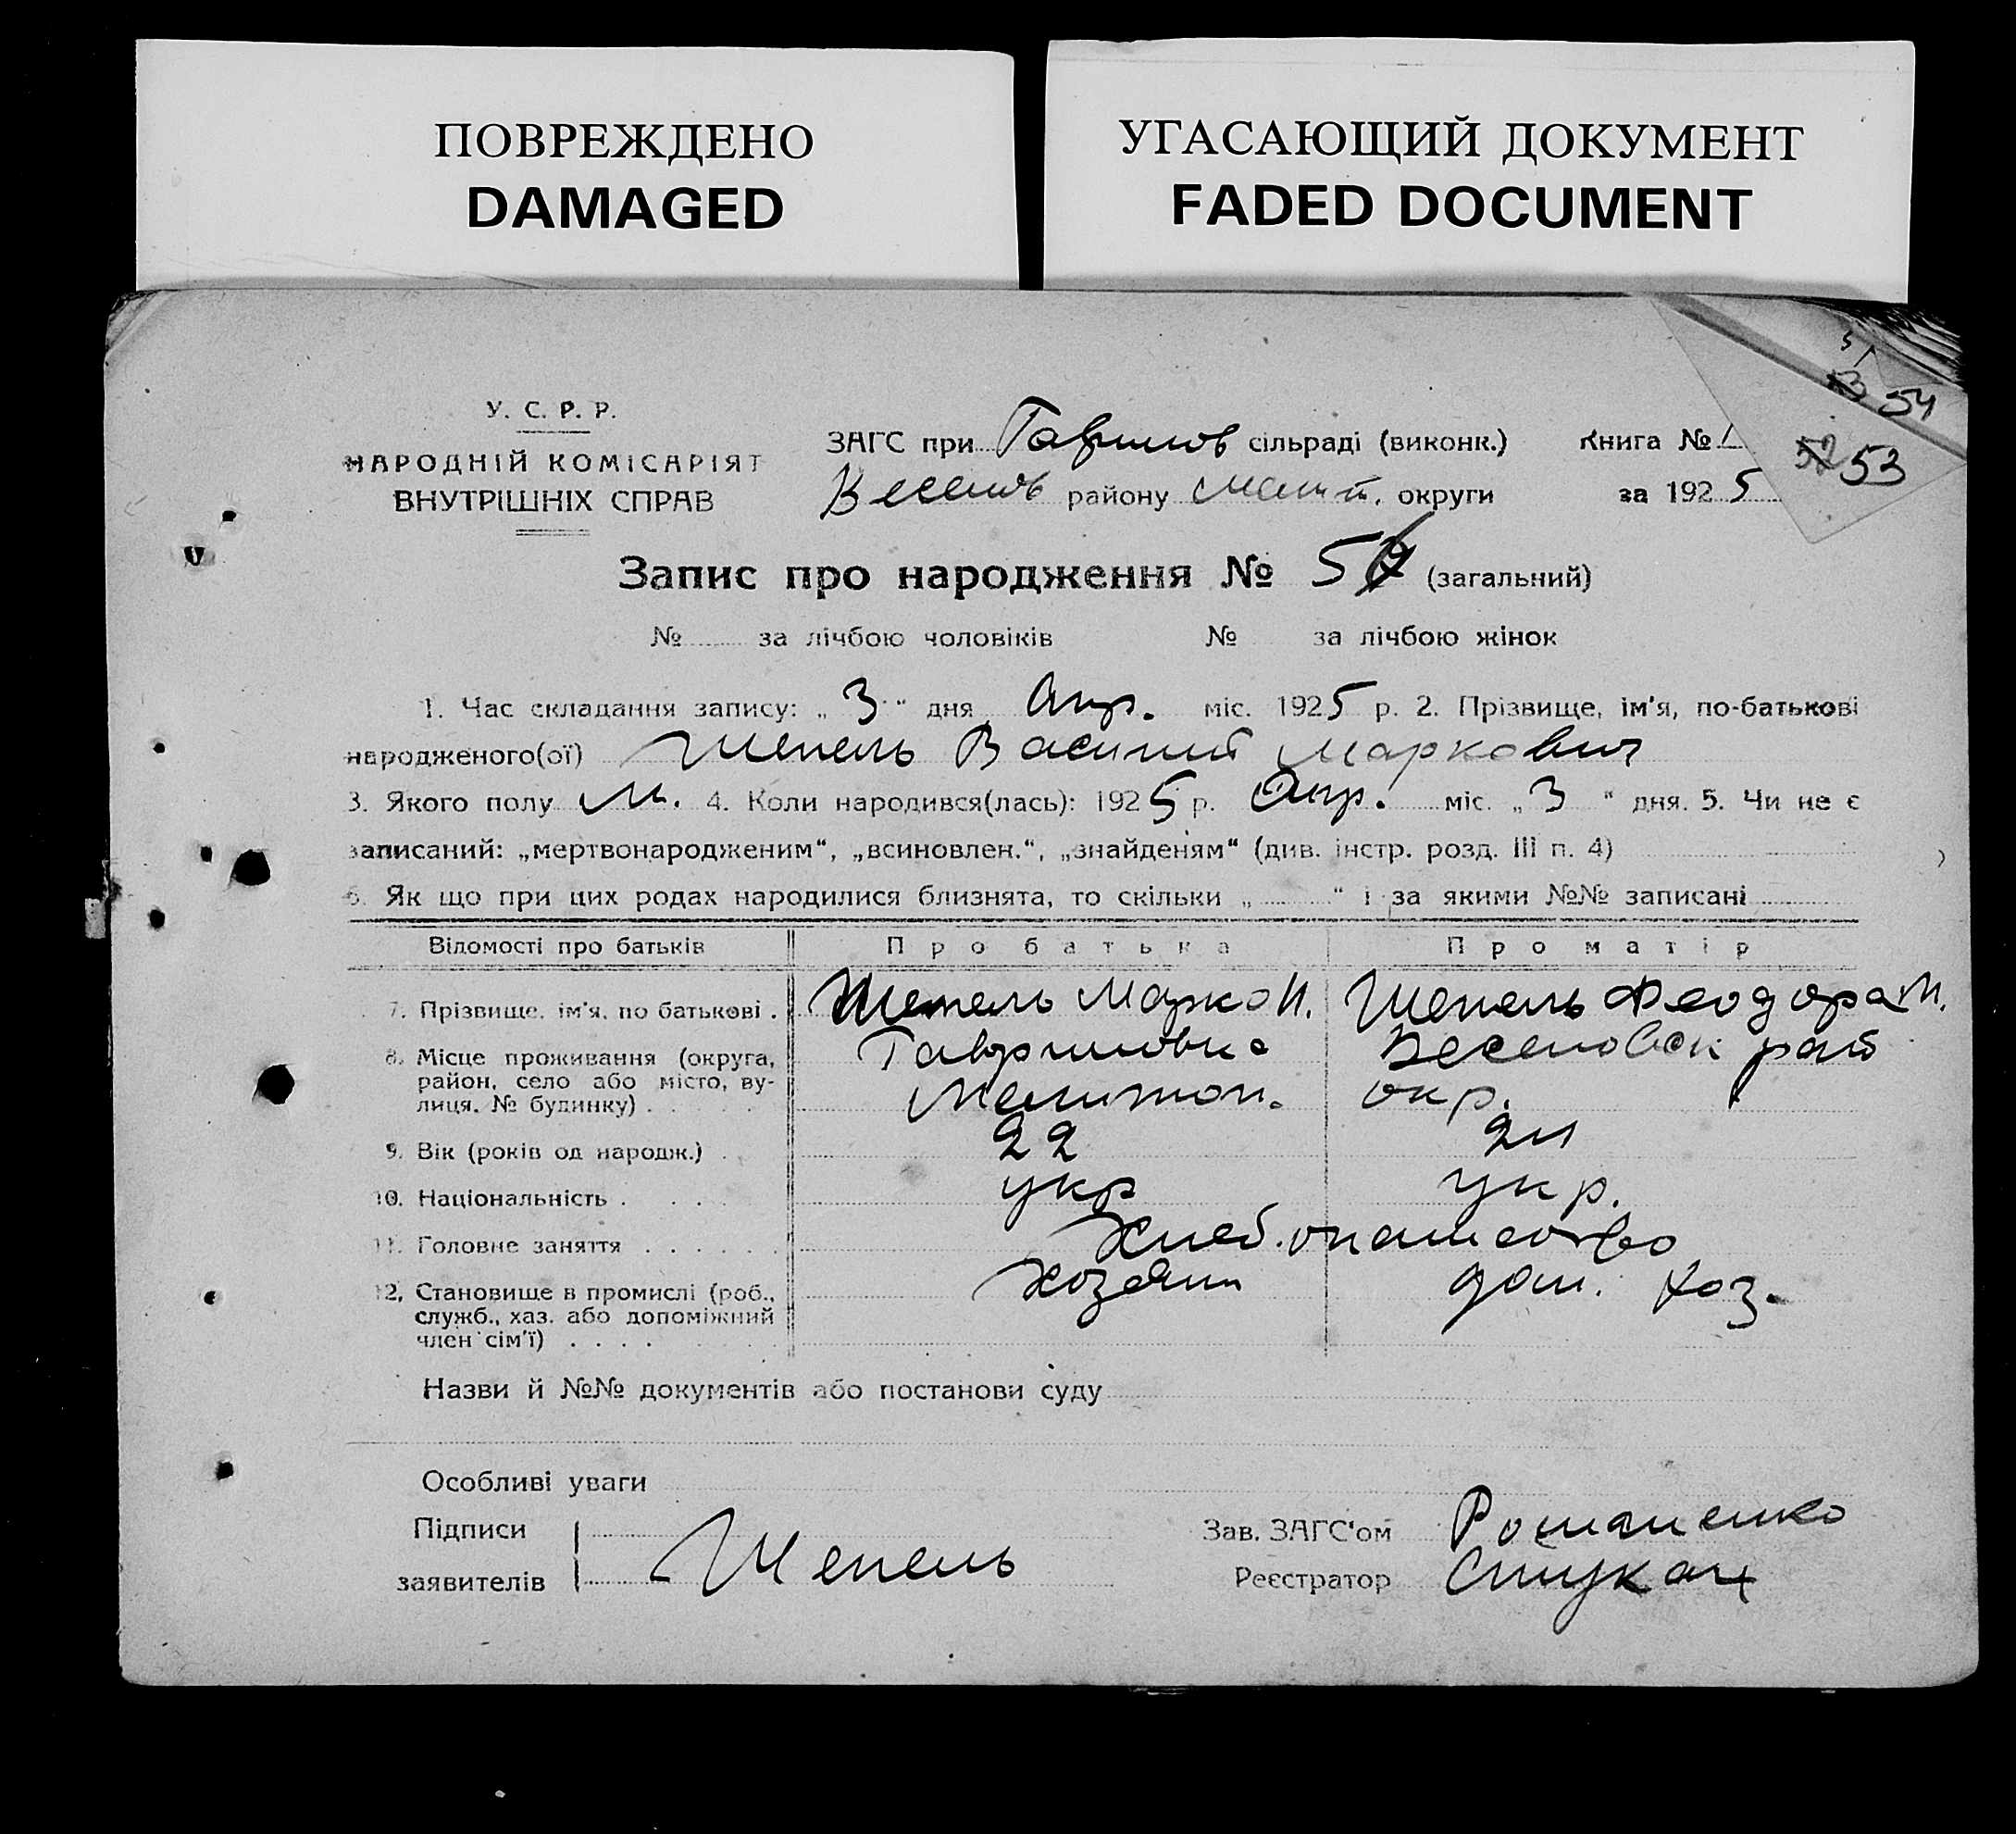 ПОВРЕЖДЕНО
DAMAGED
УГАСАЮЩИЙ ДОКУМЕНТ
FADED DOCUMENT
54
52 53
У. С. Р. Р.
НАРОДНІЙ КОМІСАРІЯТ
ВНУТРІШНІХ СПРАВ
ЗАГС при Гаврилов сільраді (виконк.) Книга № 1
Веселов району Мелит. округи за 1925
Запис про народження № 5 (загальний)
№ за лічбою чоловіків № за лічбою жінок
1. Час складання запису: „ 3 “ дня Апр. міс. 1925 р. 2. Прізвище, ім'я, по-батькові
народженого(ої) Шепель Василий Маркович
3. Якого полу м. 4. Коли народився(лась): 1925 р. Апр. міс. „ 3 “ дня. 5. Чи не є
записаний: „мертвонародженим“, „всиновлен.“, „знайденям“ (див. інстр. розд. III п. 4)
6. Як що при цих родах народилися близнята, то скільки „ “ і за якими №№ записані
Відомості про батьків Про батька Про матір
7. Прізвище, ім'я, по батькові . Шепель Марко И. Шепель Феодора И.
8. Місце проживання (округа, район, село або місто, вулиця, № будинку) . Гавриловка Веселовск рай
Мелитоп. окр.
9. Вік (років од народж.) . 22 21
10. Національність . укр укр.
11. Головне заняття . Хлебопашество
12. Становище в промислі (роб., служб., хаз. або допоміжний член сім'ї) . хозяин дом. хоз.
Назви й №№ документів або постанови суду
Особливі уваги
Підписи
заявителів Шепель
Зав. ЗАГС'ом Романенко
Реєстратор